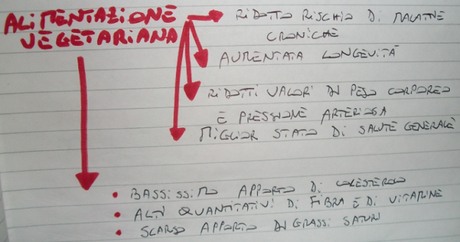 ALIMENTAZIONE
VEGETARIANA
RIDOTTO RISCHIO DI MALATTIE
CRONICHE
AUMENTATA LONGEVITÀ
RIDOTTI VALORI DI PESO CORPOREO
E PRESSIONE ARTERIOSA
MIGLIOR STATO DI SALUTE GENERALE
• BASSISSIMO APPORTO DI COLESTEROLO
• ALTI QUANTITATIVI DI FIBRA E DI VITAMINE
• SCARSO APPORTO DI GRASSI SATURI